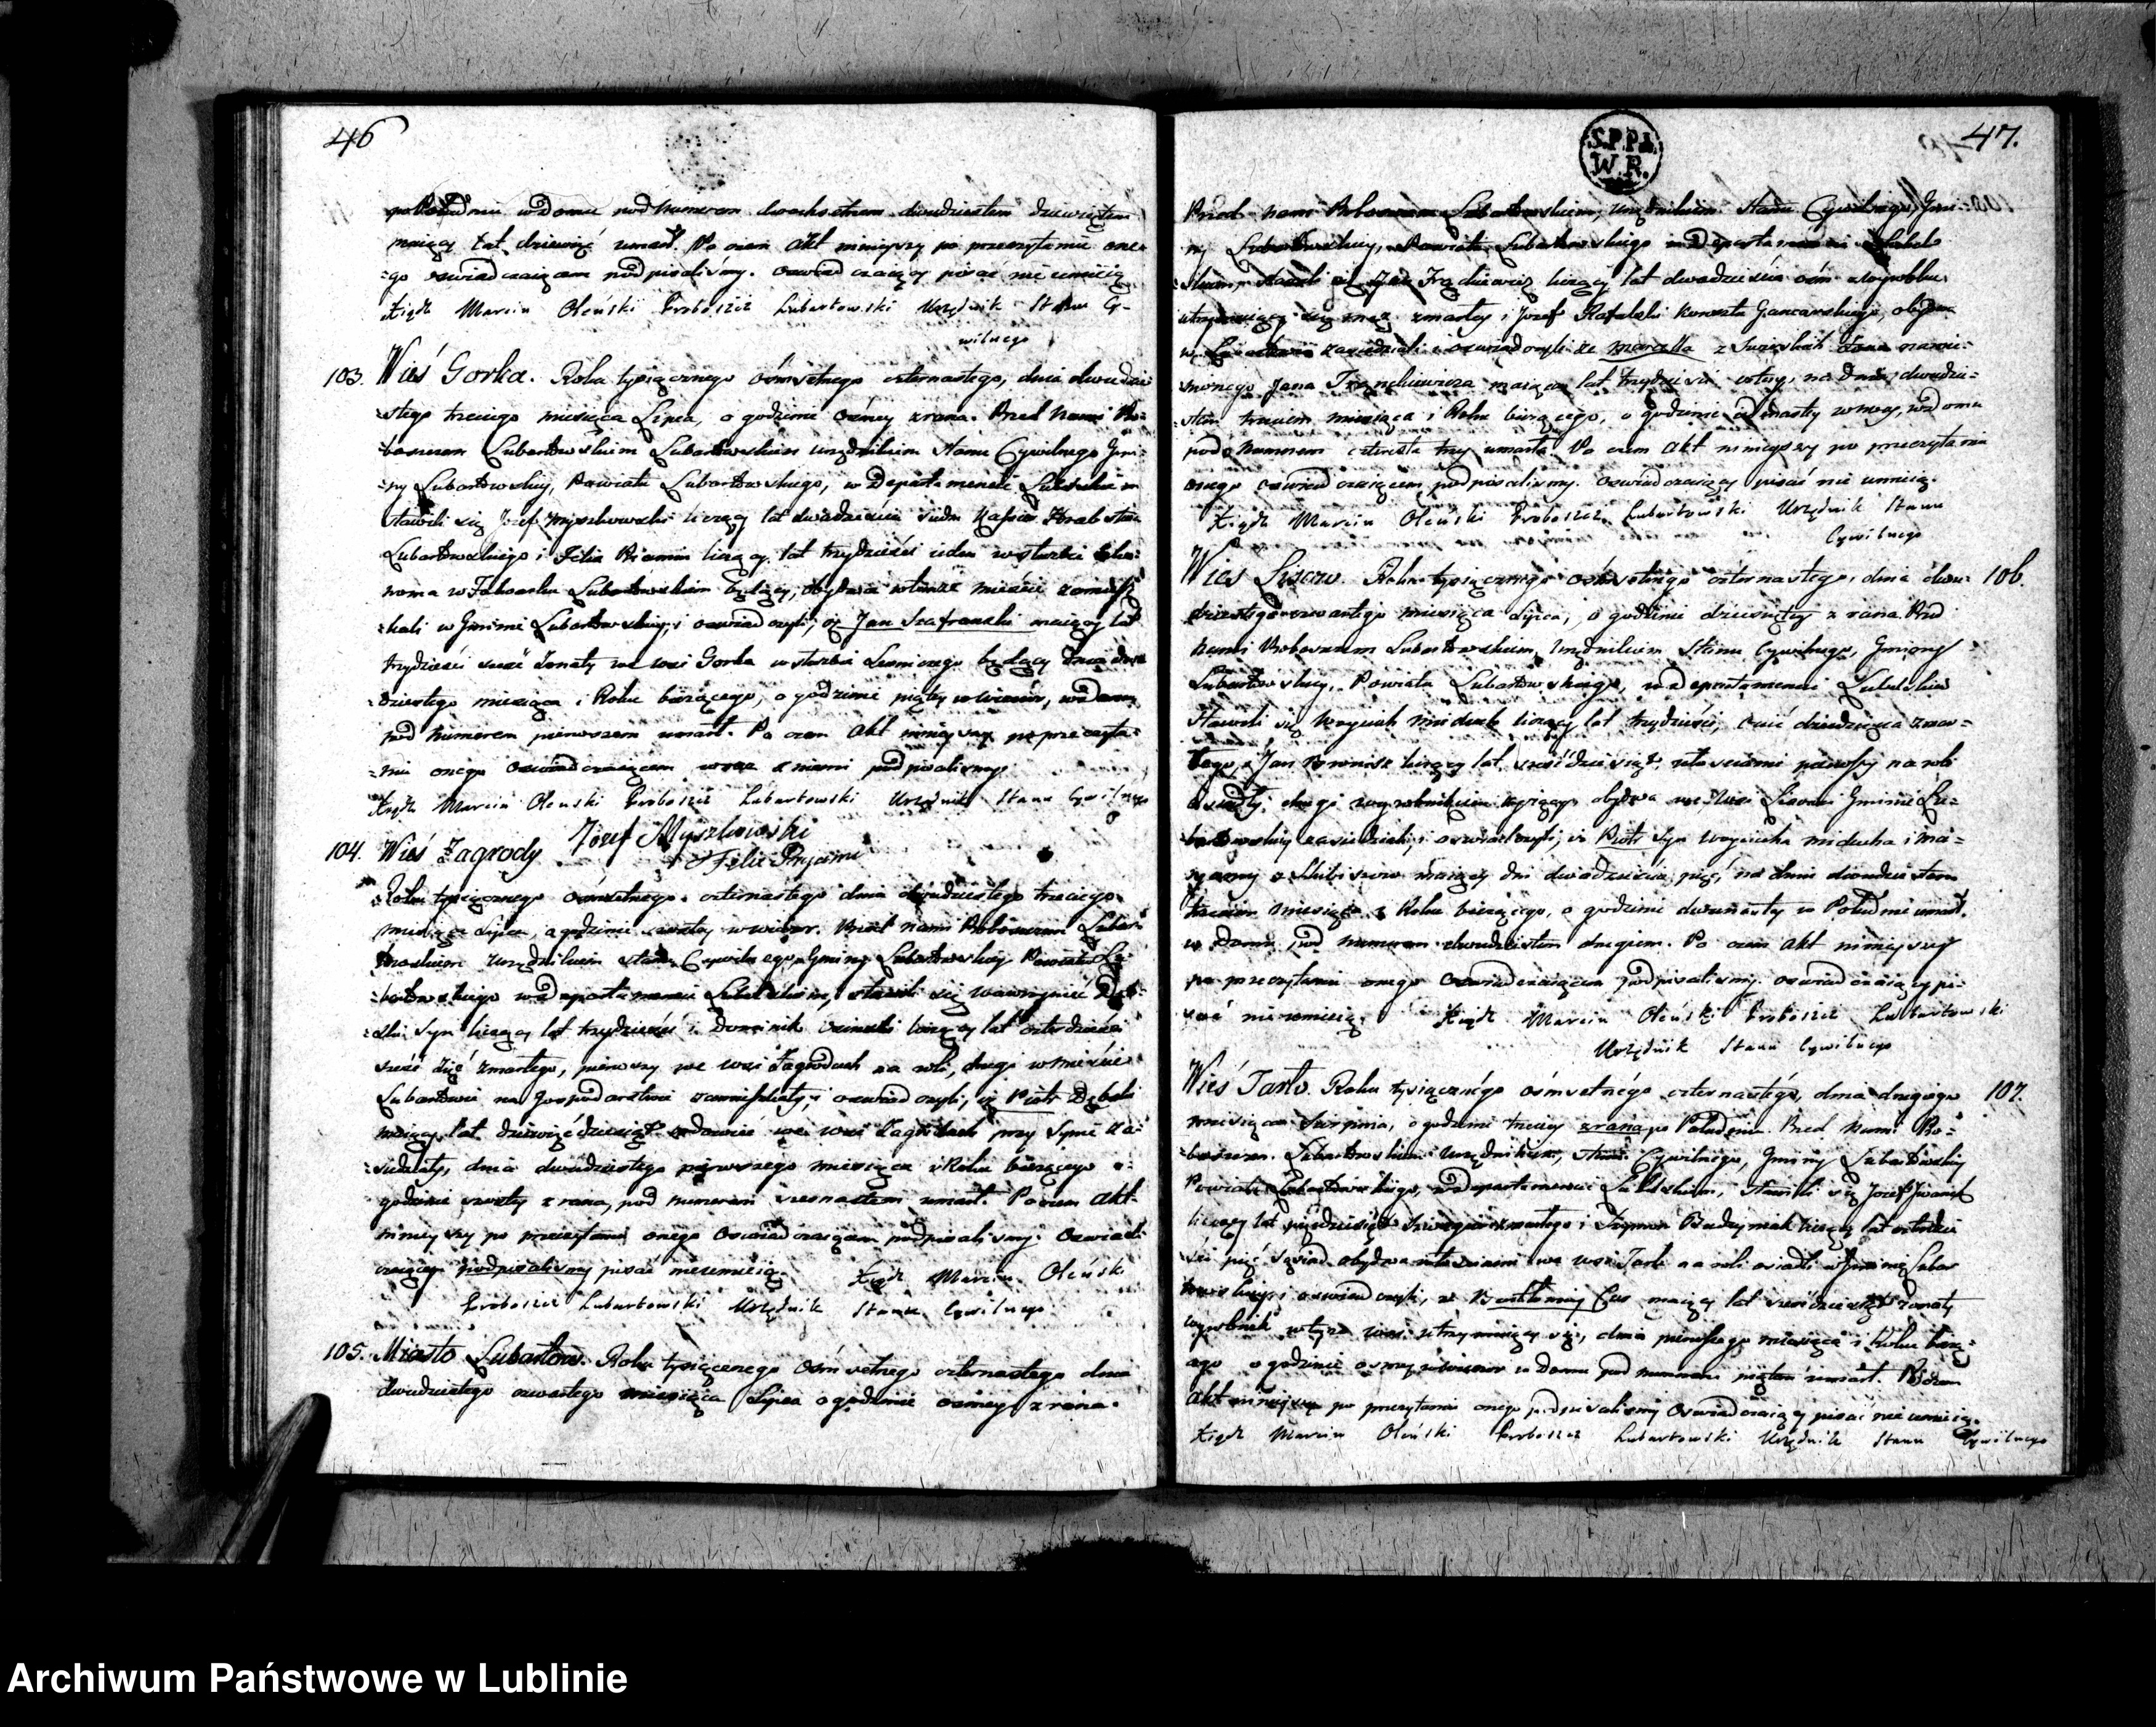 46
w Domu pod Numerem dwochsetnem dwudziestem dziewiątem
maiący lat dziewięć umarł. Po czem Akt ninieyszy po przeczytaniu one-
-go oświadczaiącem podpisaliśmy. oświadczaiący pisać nie umieią
Xiądz Marcin Oleński Proboszcz Lubartowski Urzędnik Stanu Cy-
wilnego
103. Wieś Gorka. Roku tysiącznego ośmsetnego czternastego, dnia dwudzie-
-stego trzeciego miesiąca Lipca, o godzinie ósmey z rana. Przed Nami Pro-
-boszczem Lubartowskim urzędnikiem Stanu Cywilnego Gmi-
-ny Lubartowskiey, Powiatu Lubartowskiego, w Departamencie Lubelskim
stawili się Jozef Myszkowski liczący lat dwadzieścia siedm
Lubartowskiego i Felix liczący lat trzydzieści ieden w służbie
w Lubartowskim będący, obydwa w tymże mieście zamiesz-
-kali w Gminie Lubartowskiey, i oświadczyli, iż Jan Szafranski maiący lat
trzydzieści sześć żonaty we wsi Gorka w służbie będący dnia dwu-
-dziestego miesiąca i Roku bieżącego, o godzinie piątey w wieczor, w domu
pod Numerem pierwszem umarł. Po czem Akt ninieyszy po przeczyta-
-niu onego oświadczaiącem wraz z niemi podpisaliśmy
Xiądz Marcin Oleński Proboszcz Lubartowski Urzędnik Stanu Cywilnego
Jozef Myszkowski
104. Wieś Zagrody
Felix
Roku tysiącznego ośmsetnego czternastego dnia dwudziestego trzeciego
miesiąca Lipca, o godzinie szostey w wieczor. Przed nami Proboszczem Lubar-
towskim Urzędnikiem Stanu Cywilnego, Gminy Lubartowskiey Powiatu Lu-
-bartowskiego w Departamencie Lubelskim, stawili się Wawrzyniec
syn liczący lat trzydzieści i Dominik liczący lat czterdzieści
sześć zięć zmarłego, pierwszy we wsi Zagrodach na roli, drugi w mieście
Lubartowie na Gospodarstwie zamieszkały, i oświadczyli, iż Piotr
maiący lat dziewięćdziesiąt wdowiec we wsi Zagrodach przy synie za-
dnia dwudziestego pierwszego miesiąca i Roku bieżącego o
godzinie szostey z rana, pod numerem szesnastem umarł. Po czem Akt
ninieyszy po przeczytaniu onego oświadczaiącem podpisaliśmy. Oświad-
czaiący podpisaliśmy pisać nieumieią. Xiądz Marcin Oleński
Proboszcz Lubartowski Urzędnik Stanu Cywilnego
105. Miasto Lubartow. Roku tysiącznego ośmsetnego czternastego dnia
dwudziestego czwartego miesiąca Lipca o godzinie ósmey z rana.
47.
S.P.P.L.
W.R.
Przed nami Proboszczem Lubartowskim, urzędnikiem Stanu Cywilnego, Gmi-
ny Lubartowskiey, Powiatu Lubartowskiego w Departamencie Lubel-
-skim, stawili się Jan liczący lat dwadzieścia ośm z wyrobku
utrzymuiący się mąż zmarłey i Jozef Rafalski Garncarskiego, obydwa
w Lubartowie zasiedziali i oświadczyli że Marcella z
Jana maiąca lat trzydzieści cztery, na dniu dwudzie-
-stem trzeciem miesiąca i Roku bieżącego, o godzinie w nocy, w domu
pod Numerem czterysta trzy umarła. Po czem Akt ninieyszy po przeczytaniu
onego oświadczaiącem podpisaliśmy. oświadczaiący pisać nie umieią.
Xiądz Marcin Oleński Proboszcz Lubartowski Urzędnik Stanu
Cywilnego
Wieś Lisow. Roku tysiącznego ośmsetnego czternastego, dnia dwu- 106.
dziestego czwartego miesiąca Lipca, o godzinie dziesiątey z rana. Przed
Nami Proboszczem Lubartowskim, Urzędnikiem Stanu Cywilnego, Gminy
Lubartowskiey, Powiatu Lubartowskiego, w Departamencie Lubelskim
stawili się Woyciech Miduch liczący lat trzydzieści, oyciec zmar-
-łego, i Jan liczący lat sześćdziesiąt, pierwszy na roli
osiadły, drugi obydwa we Wsi Lisowie Gminie Lu-
-bartowskiey zasiedziali, i oświadczyli, iż Piotr syn Woyciecha Miducha i Ma-
ryanny z maiący dni dwadzieścia pięć, na dniu dwudziestem
trzeciem miesiąca i Roku bieżącego, o godzinie dwunastey w Południe umarł
w Domu pod numerem dwudziestem drugiem. Po czem Akt ninieyszy
po przeczytaniu onego oświadczaiącem podpisaliśmy. oświadczaiący pi-
sać nieumieią. Xiądz Marcin Oleński Proboszcz Lubartowski
Urzędnik Stanu Cywilnego
Wieś Tarło. Roku tysiącznego ośmsetnego czternastego, dnia drugiego 107.
miesiąca Sierpnia, o godzinie trzeciey z rana po Południu. Przed Nami Pro-
-boszczem Lubartowskim Urzędnikiem, Stanu Cywilnego, Gminy Lubartowskiey
Powiatu Lubartowskiego, w Departamencie Lubelskim, stawili się Jozef
liczący lat pięćdziesiąt zmarłego i Szymon liczący lat czterdzie-
ści pięć sąsiad obydwa we wsi Tarle na roli osiadli w Gminie Lubar-
towskiey, i oświadczyli, że Bartłomiey maiący lat sześćdziesiąt żonaty
wyrobnik w teyże wsi utrzymuiący się, dnia pierwszego miesiąca i Roku bieżą-
cego o godzinie osmey w wieczor w Domu pod numerem piątem umarł. Po czem
Akt ninieyszy po przeczytaniu onego podpisaliśmy Oświadczaiący pisać nie umieią.
Xiądz Marcin Oleński Proboszcz Lubartowski Urzędnik Stanu Cywilnego
Archiwum Państwowe w Lublinie